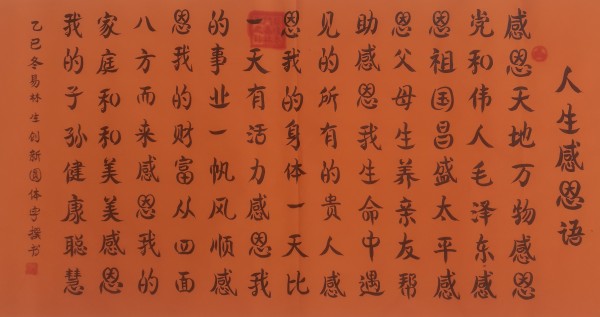 人生感恩语
感恩天地万物感恩
党和伟人毛泽东感
恩祖国昌盛太平感
恩父母生养亲友帮
助感恩我生命中遇
见的所有的贵人感
恩我的身体一天比
一天有活力感恩我
的事业一帆风顺感
恩我的财富从四面
八方而来感恩我的
家庭和和美美感恩
我的子孙健康聪慧
乙巳冬易林生创新圆体字撰书